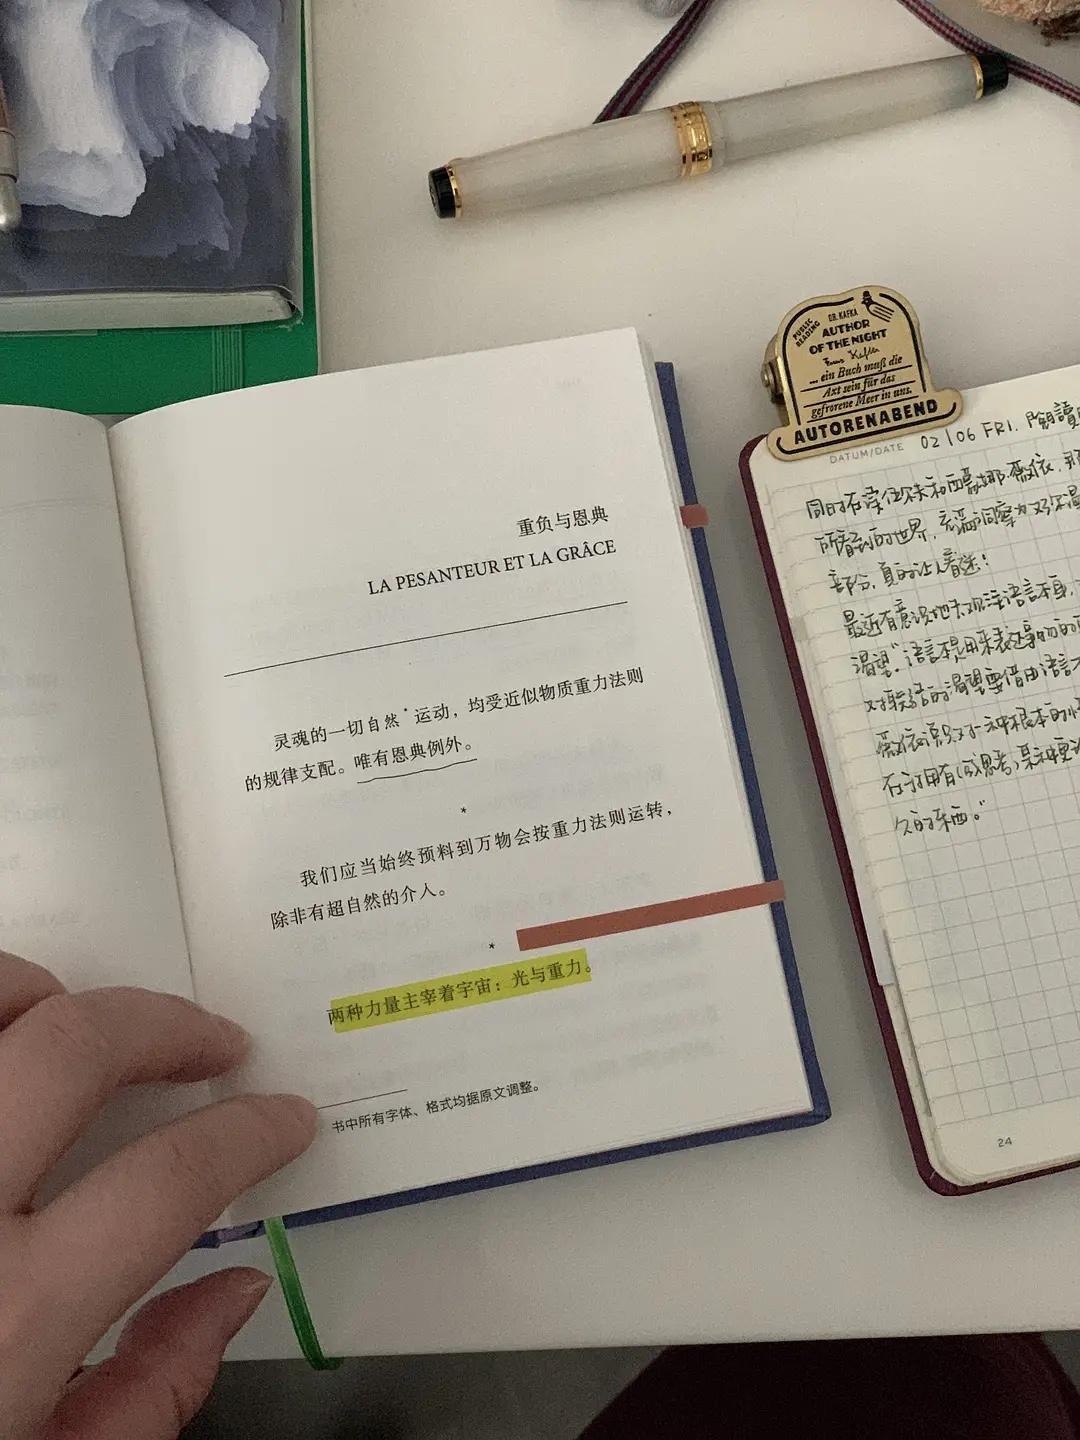 重负与恩典
LA PESANTEUR ET LA GRÂCE
灵魂的一切自然*运动，均受近似物质重力法则
的规律支配。唯有恩典例外。
*
我们应当始终预料到万物会按重力法则运转，
除非有超自然的介入。
*
两种力量主宰着宇宙：光与重力。
书中所有字体、格式均据原文调整。
PUBLIC READING
DR. KAFKA
AUTHOR
OF THE NIGHT
Franz Kafka
... ein Buch muß die
Axt sein für das
gefrorene Meer in uns.
AUTORENABEND
DATUM/DATE 02/06 FRI.
同时在读伍尔夫和西蒙娜·薇依,
所看到的世界,充满洞察力又
部分,真的让人着迷!
最近有意识地去观注语言本身,
渴望"语言不是用来表述事物的
对联结的渴望要借由语言
薇依意识到一种根本的
在于拥有(或思考)某种更
久的东西。"
24